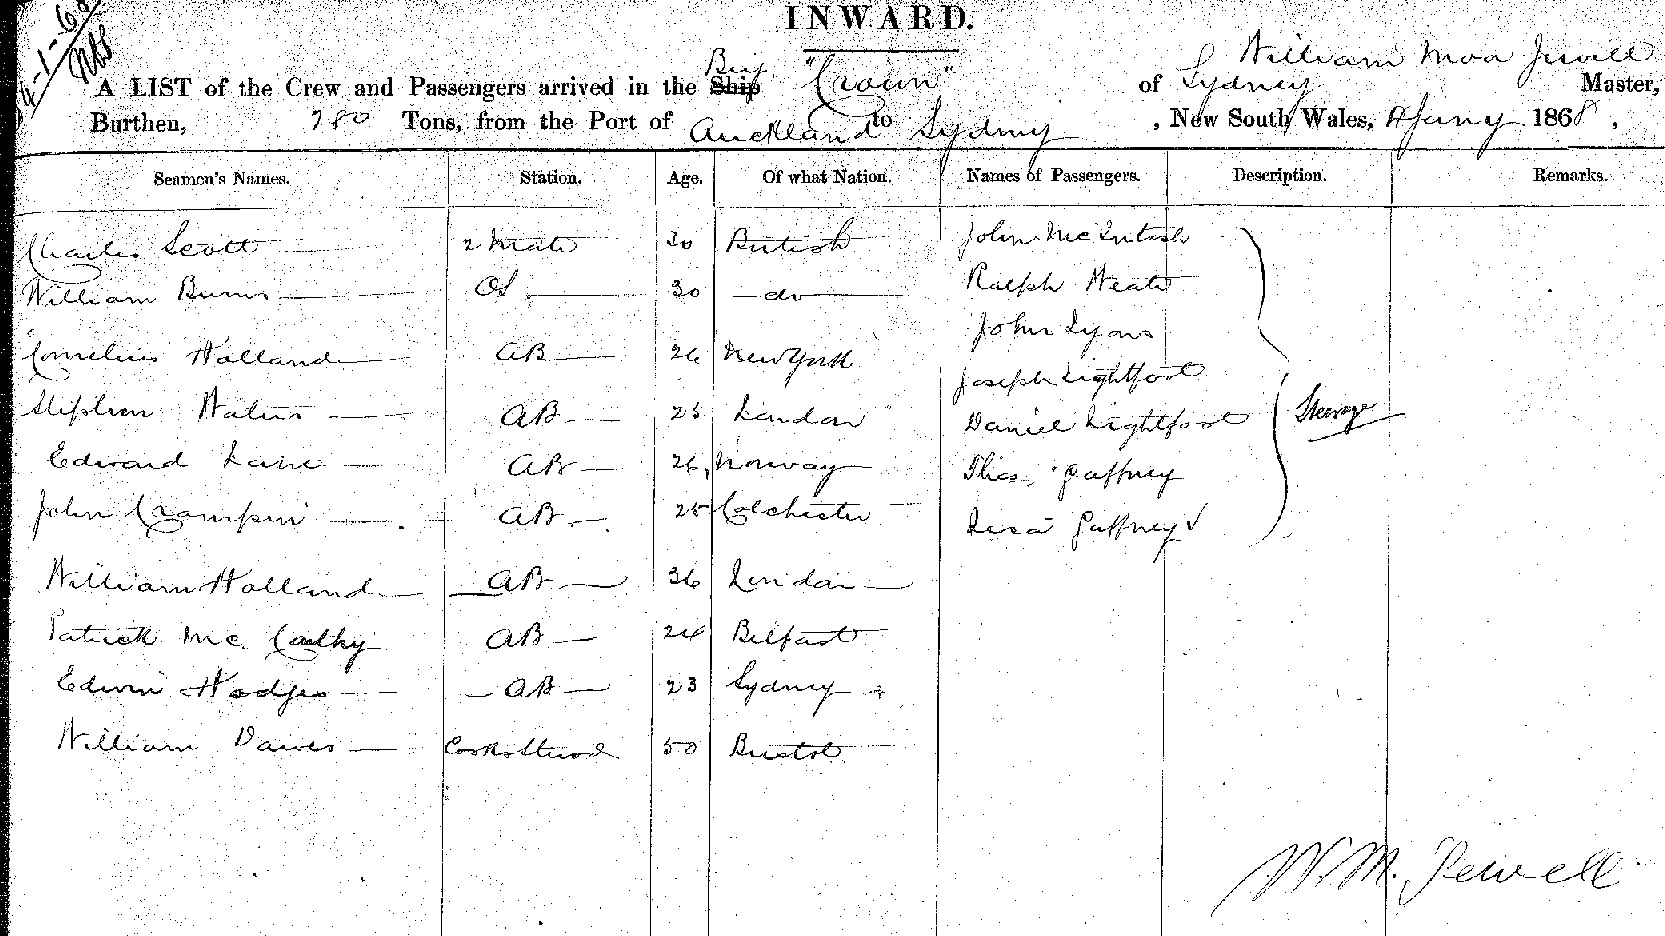 INWARD.
Brig William Moor Jewell
A LIST of the Crew and Passengers arrived in the Ship "Crown" of Sydney Master,
Burthen, 280 Tons, from the Port of Auckland to Sydney , New South Wales, Jany 1868 ,
Seamen's Names. Station. Age. Of what Nation. Names of Passengers. Description. Remarks.
Charles Scott 2 Mate 30 British John McIntosh
William Burns OS 30 do Ralph Heath
John Lyons
Cornelius Holland AB 26 New York
Joseph Lightfoot
Stephen AB 23 London Daniel Lightfoot Steerage
Edward AB 26 Norway Thos. Gaffney
John Crampin AB 25 Colchester Gaffney
William Holland AB 36 London
Patrick Mc Cathy AB 24 Belfast
Edwin Hodges AB 23 Sydney
William Davies Cook & Steward 50 Bristol
W. M. Jewell